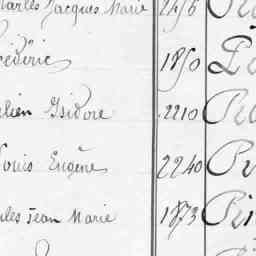 Charles Jacques Marie 2456
Frédéric 1850
elien Isidore 2210
Louis Eugène 2240
ules Jean Marie 1873